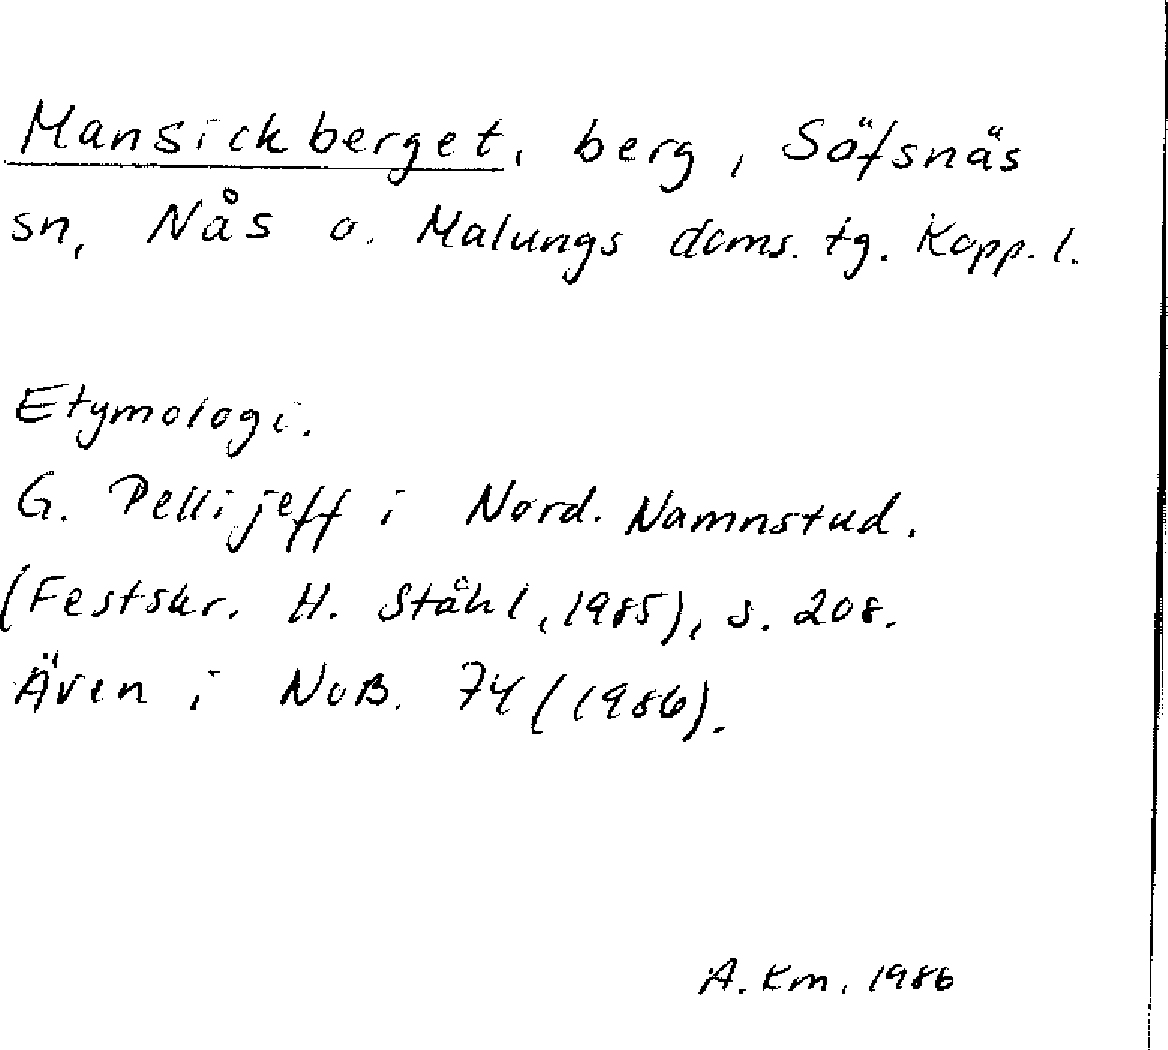 Mansickberget, berg, Säfsnäs
sn, Nås o. Malungs doms. tg. Kopp. l.
Etymologi.
G. Pellijeff i Nord. Namnstud.
(Festskr. H. Ståhl, 1985), s. 208.
Även i NoB. 74 (1986).
A. Km. 1986